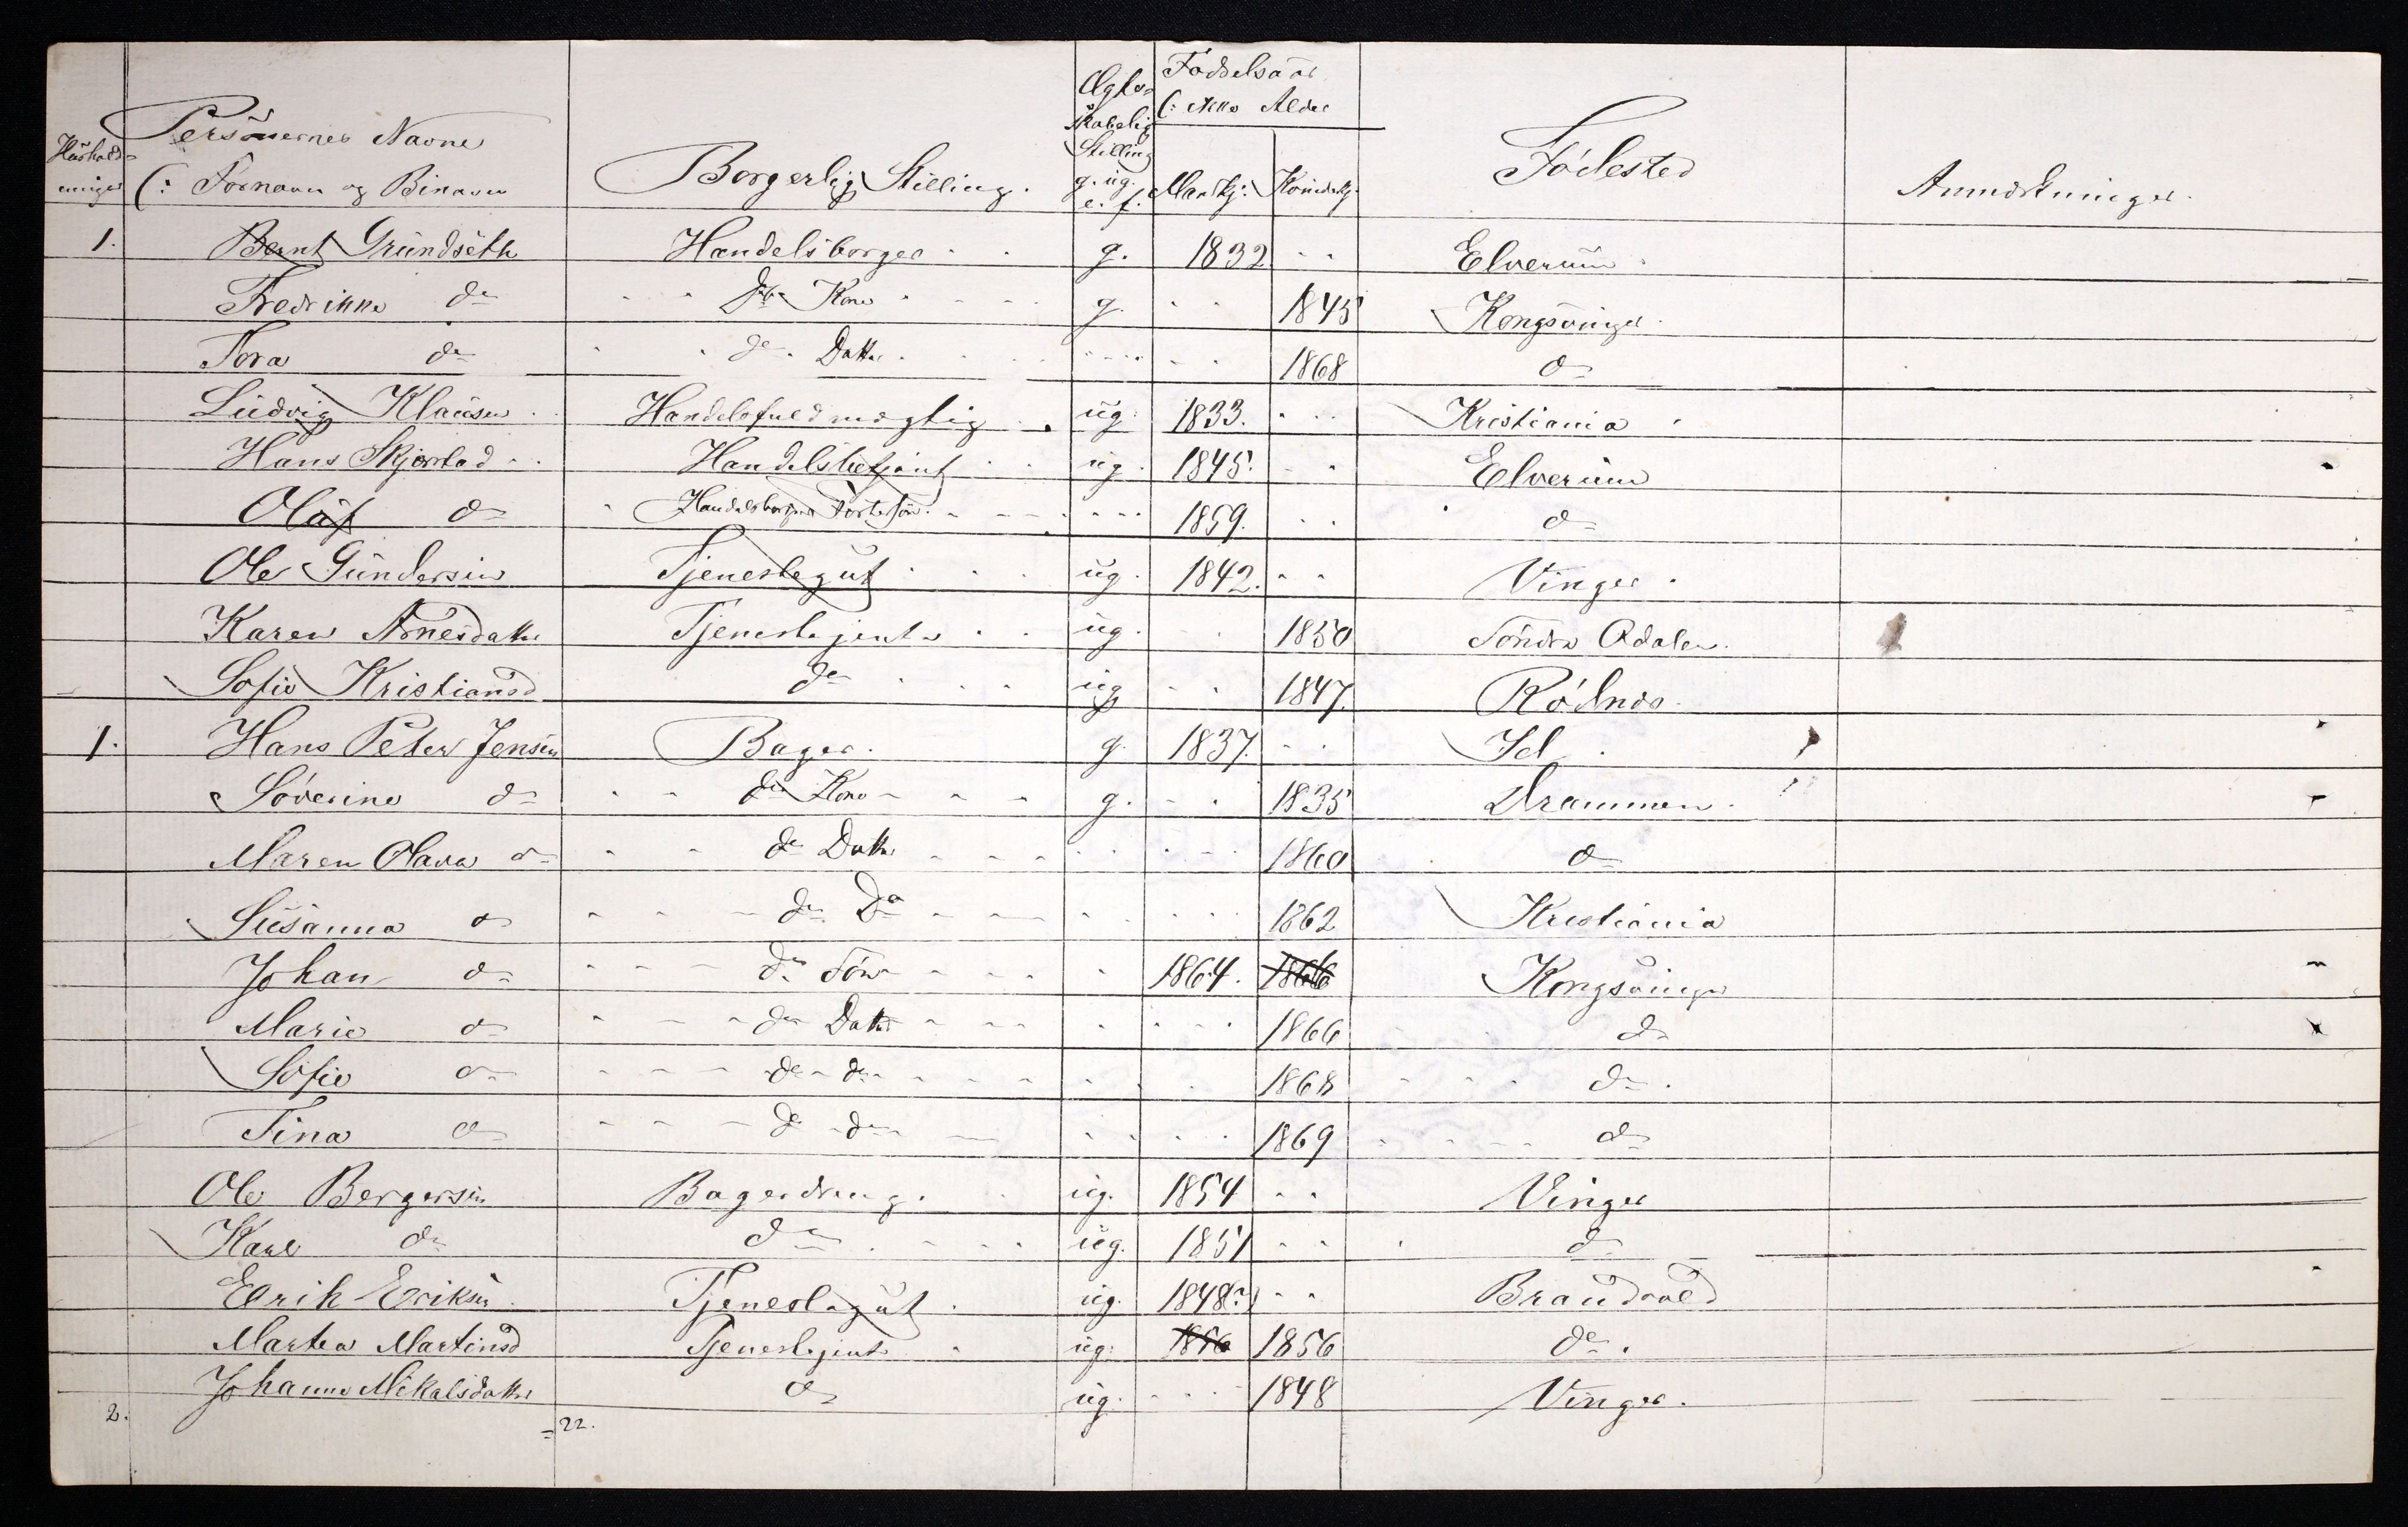 Hushold-
ninger
Personernes Navne
(: Fornavn og Binavn
Borgerlig Stilling.
Ægte-
skabelig
Stilling
g. ug.
e. f.
Fødselsaar
(: ikke Alder
Mandkj: Kvindekj.
Födested
Anmærkninger.
1. Bernt Grundseth Handelsborger g. 1832 Elverum
Fredrikke do do Kone g. 1845 Kongsvinger
Tora do do Datter 1868 do
Ludvig Klausen Handelsfuldmægtig ug. 1833. Kristiania
Hans Handelsbetjent ug. 1845. Elverum
Olaf do Handelsborgers 1859. do
Ole Gundersen Tjenestegut ug. 1842. Vinger
Karen Arnesdatter Tjenestejente ug. 1850 Söndre Odalen.
Sofie Kristiansd do ug 1847. Rödnes
1. Hans Peter Jensen Bager. g. 1837. Id
Söverine do do Kone g. 1835 Drammen.
Maren Olava do do Datter 1860 do
Susanna do do Do 1862 Kristiania
Johan do do Sön 1864. 1866 Kongsvinger
Marie do do Datter 1866 do
Sofie do do do 1868 do
Tina do do do 1869 do
Ole Bergersen Bagerdreng. ug. 1854 Vinger
Karl do do ug. 1851 do
Erik Eriksen Tjenestegut ug. 1848? Brandvold
Martea Martinsd Tjenestejente ug. 1856 1856 do.
Johanne Mikalsdatter do ug. 1848 Vinger.
2. =22.